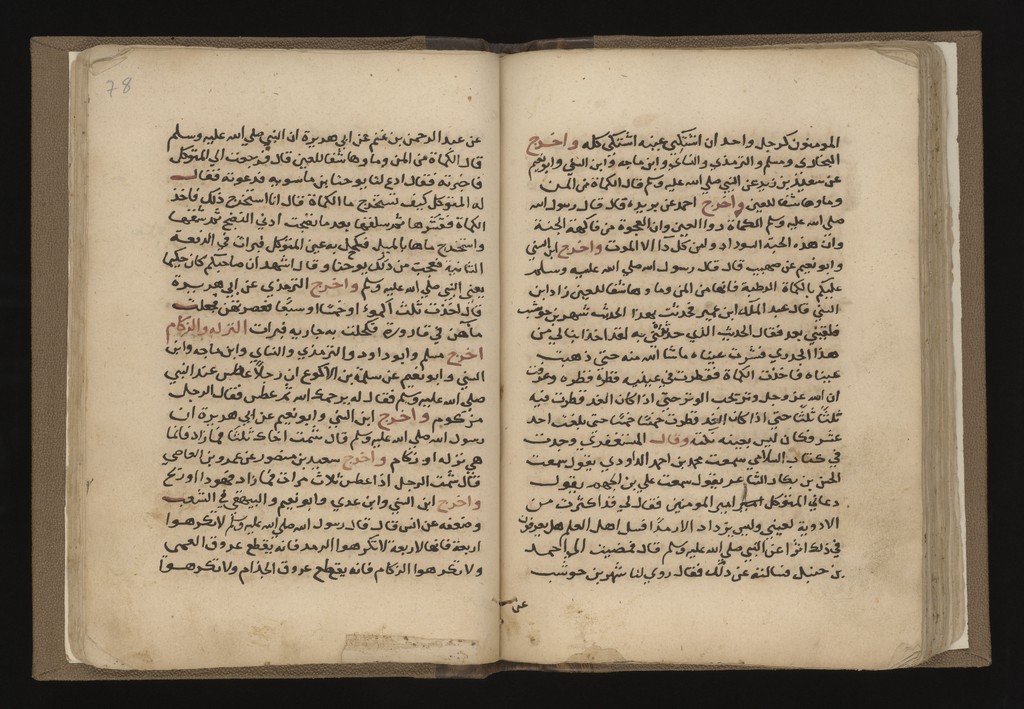 المومنون كرجل واحد ان اشتكى عينه اشتكى كله واخرج
البخاري ومسلم والترمذي والنساي وابن ماجه وابن السني وابو نعيم
عن سعيد بن زيد عن النبي صلى الله عليه وسلم قال الكماة من المن
وماوها شفا للعين واخرج احمد عن بريدة قال قال رسول الله
صلى الله عليه وسلم الكماة دوا العين وان العجوة من فاكهة الجنة
وان هذه الحبة السودا دوا من كل دا الا الموت واخرج ابن السني
وابو نعيم عن صهيب قال قال رسول الله صلى الله عليه وسلم
عليكم بالكماة الرطبة فانها من المن وماوها شفا للعين زاد ابن
السني قال عبد الملك ابن عمير فحدثت بهذا الحديث شهر بن حوشب
فلقيني بعد فقال الحديث الذي حدثتني به لقد اخذ ابنا لي من
هذا الجدري فنشرت عيناه ماشا الله منه حتى ذهبت
عيناه فاخذت الكماة فقطرت في عينيه قطرة قطره وعرفت
ان الله عز وجل وتر يحب الوتر حتى اذا كان الغد قطرت فيه
ثلثا ثلثا حتى اذا كان الغد قطرت خمسا خمسا حتى بلغت احد
عشر فكان ليس بعينه نكته وقال المستغفري وجدت
في كتاب السلامي سمعت محمد بن احمد الداودي يقول سمعت
الحسن بن بكار الشاعر يقول سمعت علي بن الجهم يقول
دعاني المتوكل امير المومنين فقال لي قد اكثرت من
الادوية لعيني وليس يزداد الا رمدا فسل اهل العلم هل يعرفون
في ذلك اثرا عن النبي صلى الله عليه وسلم قال فمضيت الى احمد
بن حنبل فسالته عن ذلك فقال روي لنا شهر بن حوشب
عن
78
عن عبد الرحمن بن غنم عن ابي هريرة ان النبي صلى الله عليه وسلم
قال الكماة من المن وماوها شفا للعين قال فرجعت الى المتوكل
فاخبرته فقال ادع لنا يوحنا بن ماسويه فدعوته فقال
له المتوكل كيف تستخرج ما الكماة قال انا استخرج ذلك فاخذ
الكماة فقشرها ثم سلقها بعد ما نضجت ادنى النضج ثم شقها
واستخرج ماها بالميل فكحل به عين المتوكل فبرات في الدفعة
الثانية فعجب من ذلك يوحنا وقال اشهد ان صاحبكم كان حكيما
يعني النبي صلى الله عليه وسلم واخرج الترمذي عن ابي هريرة
قال اخذت ثلث اكمو او خمسا او سبعا فعصرتهن فجعلت
ماهن في قارورة فكحلت به جارية فبرات النزله والزكام
اخرج مسلم وابو داود والترمذي والنساي وابن ماجه وابن
السني وابو نعيم عن سلمة بن الاكوع ان رجلا عطس عند النبي
صلى الله عليه وسلم فقال له يرحمك الله ثم عطس فقال الرجل
مزكوم واخرج ابن السني وابو نعيم عن ابي هريرة ان
رسول الله صلى الله عليه وسلم قال شمت اخاك ثلثا فما زاد فانما
هي نزله او زكام واخرج سعيد بن منصور عن عمرو بن العاصي
قال شمت الرجل اذا عطس ثلاث مرات فما زاد فهو دا او ريح
واخرج ابن السني وابن عدي وابو نعيم والبيهقي في الشعب
وضعفه عن انس قال قال رسول الله صلى الله عليه وسلم لا تكرهوا
اربعة فانها لاربعة لا تكرهوا الرمد فانه يقطع عروق العمى
ولا تكرهوا الزكام فانه يقطع عروق الجذام ولا تكرهوا